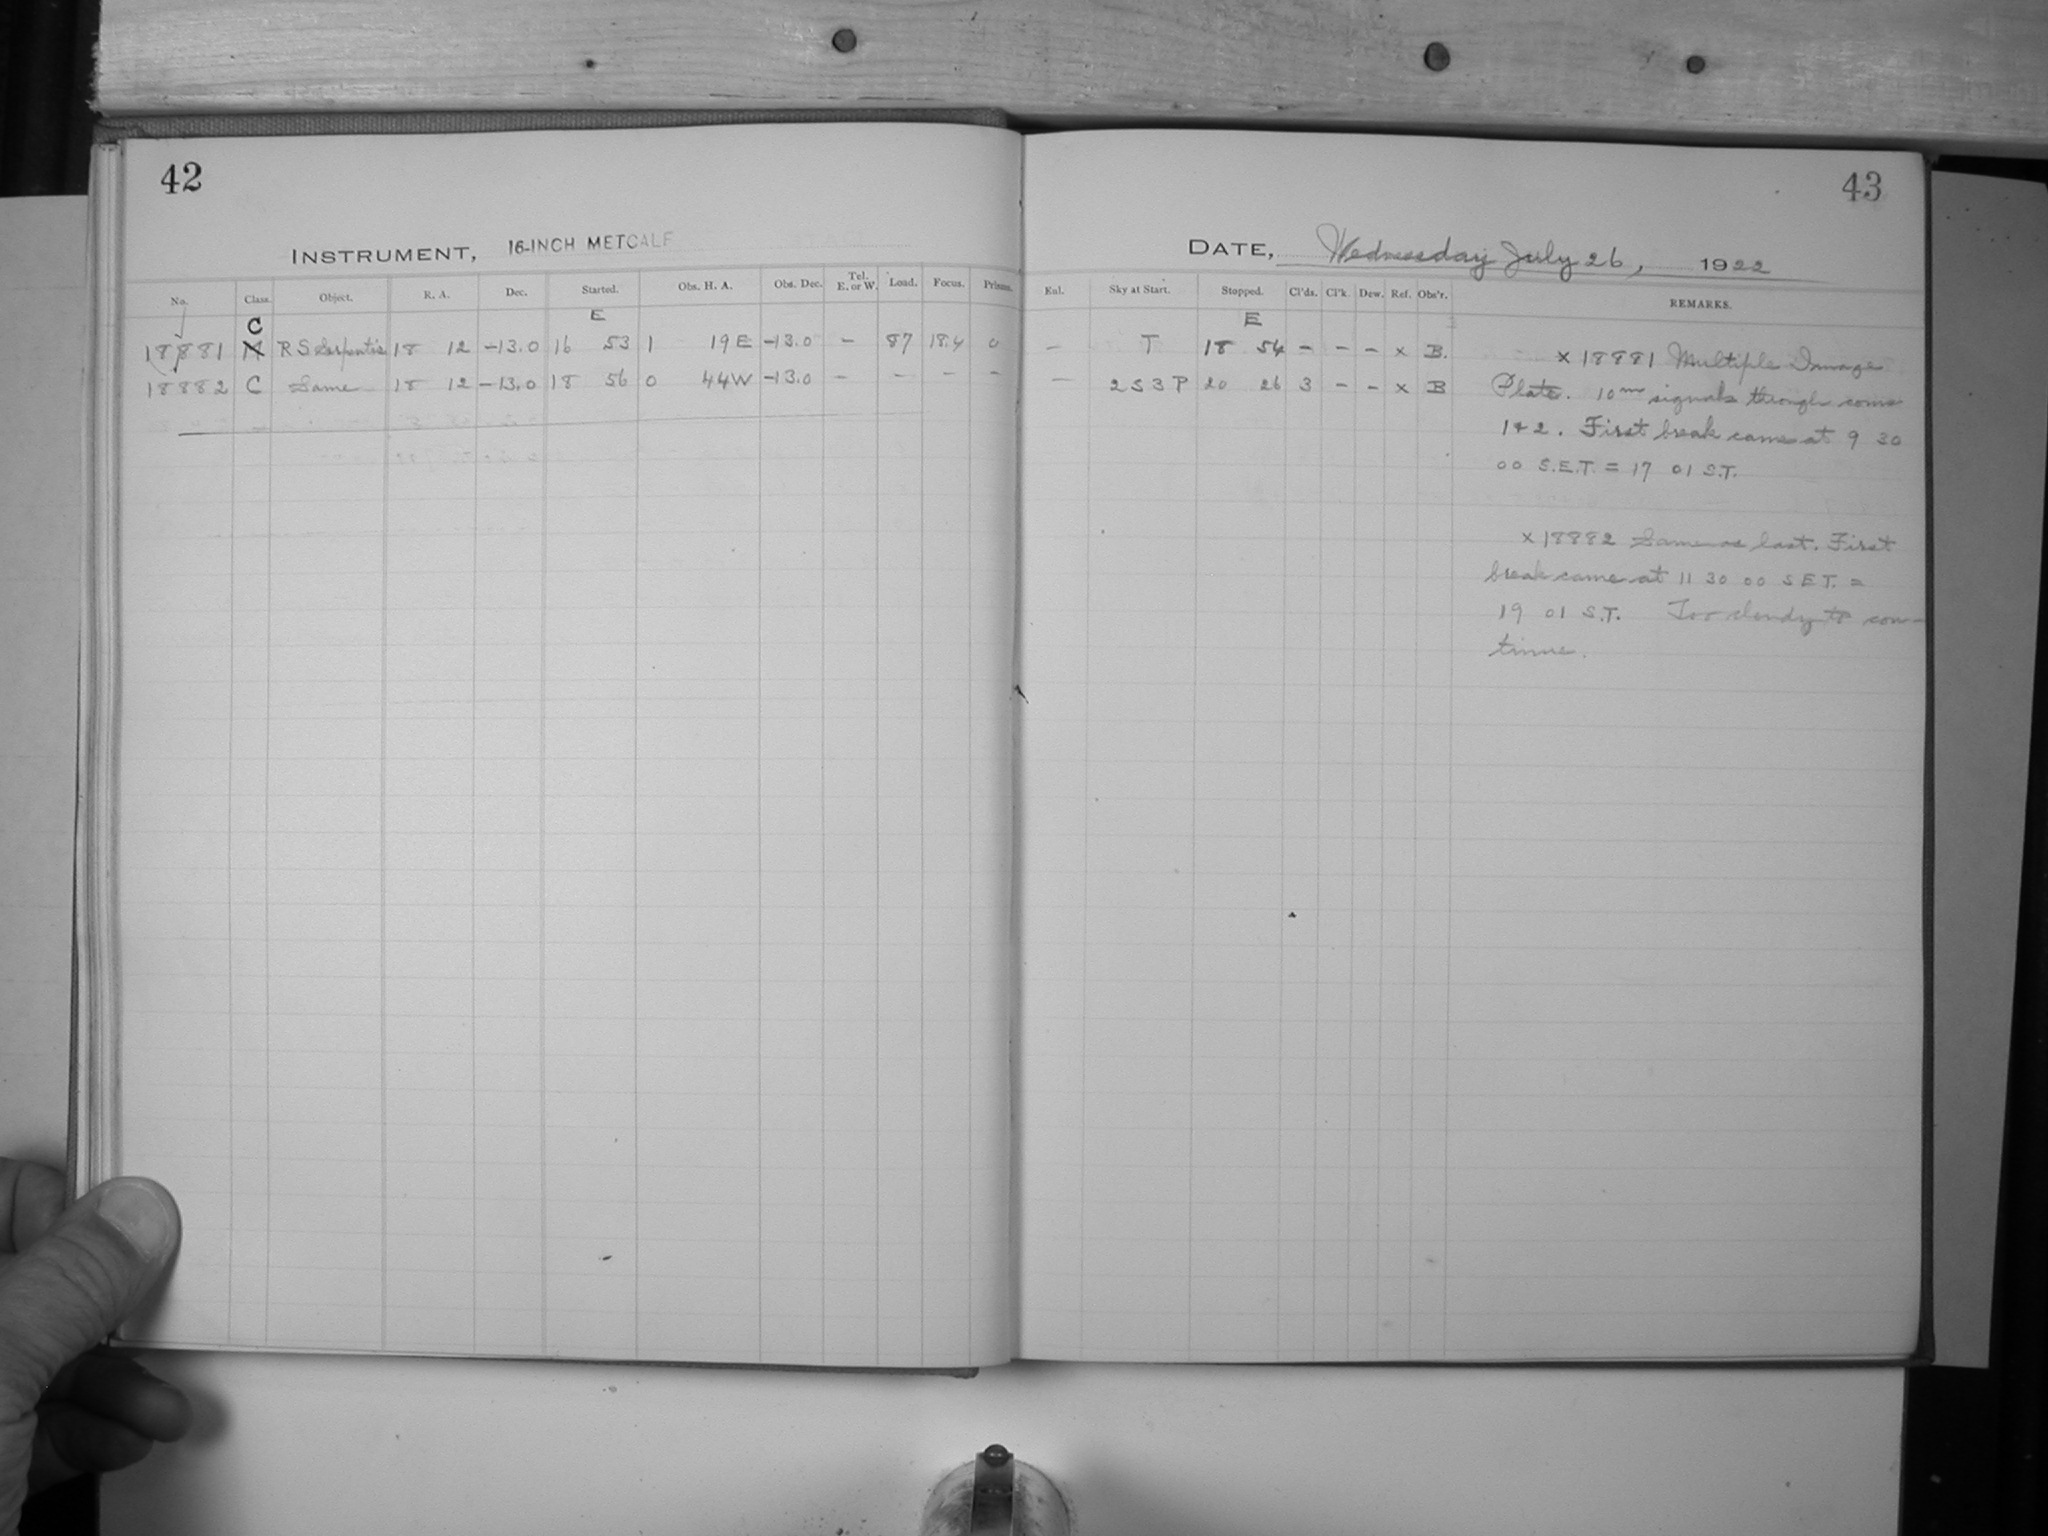 42
43
INSTRUMENT, 16-INCH METCALF
DATE, Wednesday July 26, 1922
No. Class. Object. R. A. Dec. Started. Obs. H. A. Obs. Dec. Tel. E. or W. Load. Focus. Prisms. Eul. Sky at Start. Stopped. Cl'ds. Cl'k. Dew. Ref. Obs'r. REMARKS.
C E E
18881 M R S Serpentis 18 12 -13.0 16 53 1 19 E -13.0 - 87 18.4 0 - T 18 54 - - - x B.
18882 C Same 18 12 -13.0 18 56 0 44 W -13.0 - - - - - 2 S 3 P 20 26 3 - - x B
x 18881 Multiple Image
Plate. 10m signals through coms
1 & 2. First break came at 9 30
00 S.E.T. = 17 01 S.T.
x 18882 Same as last. First
break came at 11 30 00 S E T. =
19 01 S.T. Too cloudy to con-
tinue.